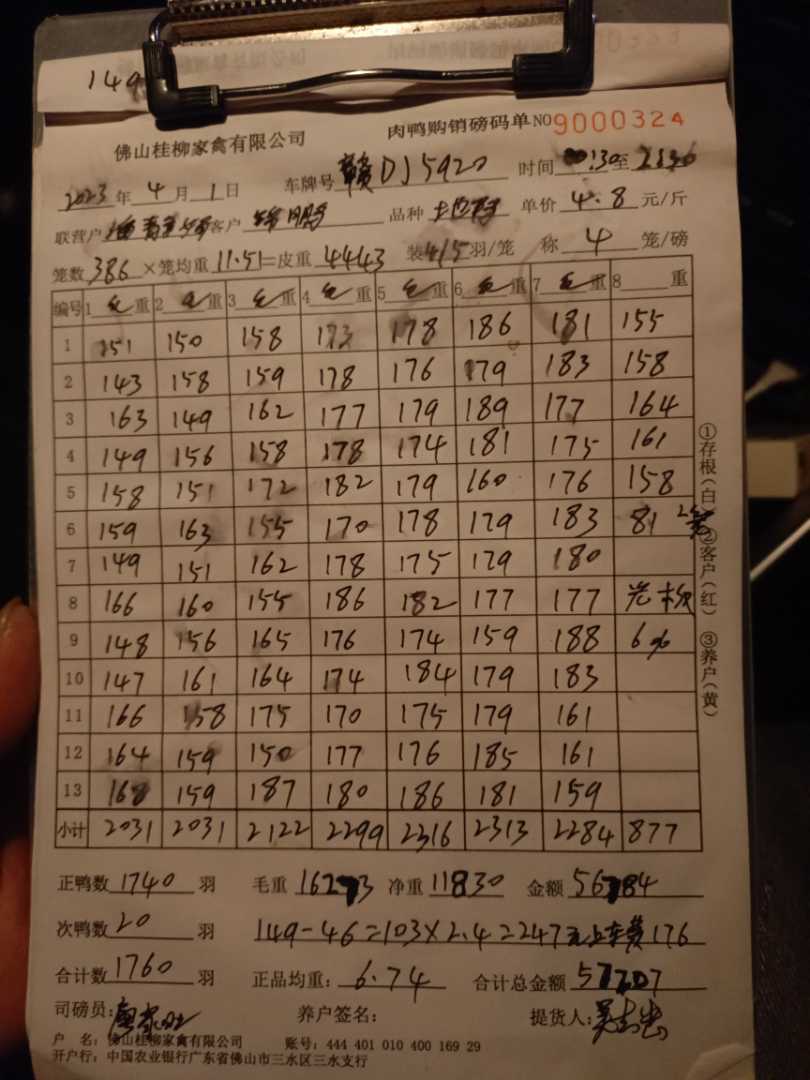 149
佛山桂柳家禽有限公司 肉鸭购销磅码单 NO 9000324
2023年4月1日 车牌号 赣DJ5920 时间 :30至
联营户 客户 品种 单价 4.8 元/斤
笼数 386 ×笼均重 11.51=皮重 4443 装4/5羽/笼 称 4 笼/磅
编号 1 毛重 2 毛重 3 毛重 4 毛重 5 毛重 6 毛重 7 毛重 8 重
1 151 150 158 173 178 186 181 155
2 143 158 159 178 176 179 183 158
3 163 149 162 177 179 189 177 164
4 149 156 158 178 174 181 175 161
5 158 151 172 182 179 160 176 158
6 159 163 155 170 178 179 183 81 2笼
7 149 151 162 178 175 179 180
8 166 160 155 186 182 177 177
9 148 156 165 176 174 159 188 6%
10 147 161 164 174 184 179 183
11 166 158 175 170 175 179 161
12 164 159 150 177 176 185 161
13 168 159 187 180 186 181 159
小计 2031 2031 2122 2299 2316 2313 2284 877
①存根(白) ②客户(红) ③养户(黄)
正鸭数 1740 羽 毛重 16273 净重 11830 金额 56784
次鸭数 20 羽 149-46=103×2.4=247元上车费176
合计数 1760 羽 正品均重: 6.74 合计总金额 57207
司磅员: 养户签名: 提货人:
户 名: 佛山桂柳家禽有限公司 账号: 444 401 010 400 169 29
开户行: 中国农业银行广东省佛山市三水区三水支行